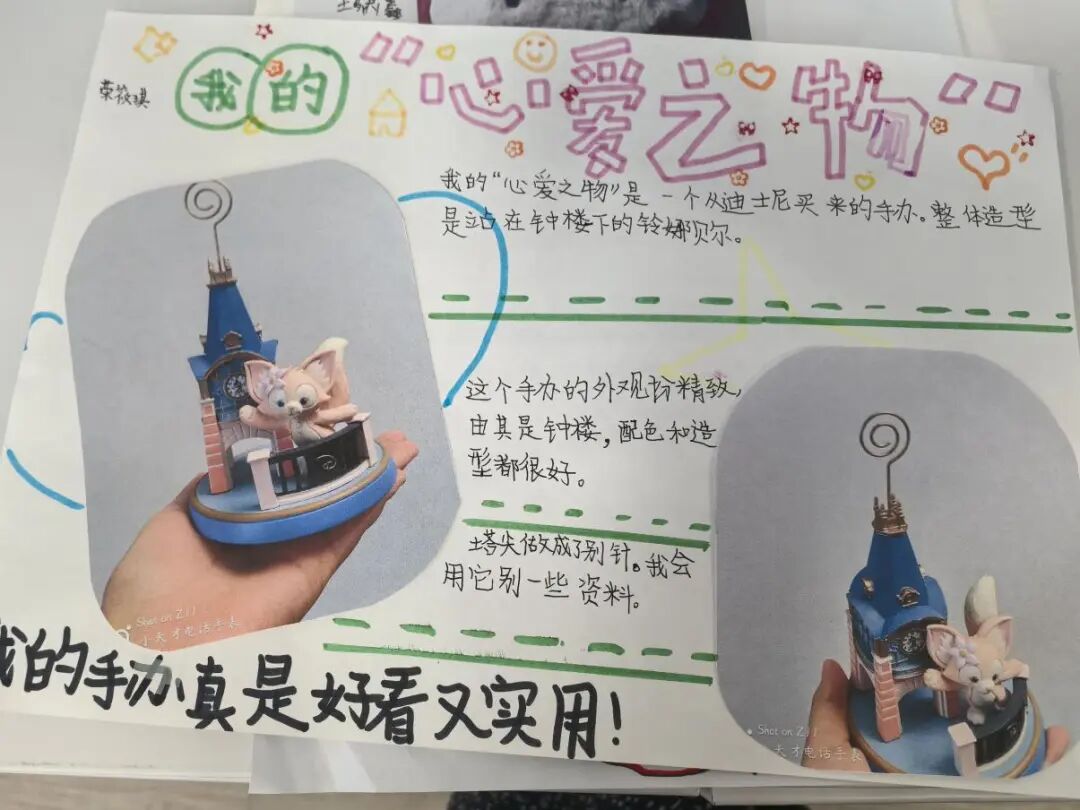 我的“心爱之物”
荣筱琪
我的“心爱之物”是一个从迪士尼买来的手办。整体造型
是站在钟楼下的铃娜贝尔。
这个手办的外观份精致,
由其是钟楼,配色和造
型都很好。
塔尖做成了别针。我会
用它别一些资料。
Shot on Z11
小天才电话手表
Shot on Z11
天才电话手表
我的手办真是好看又实用!